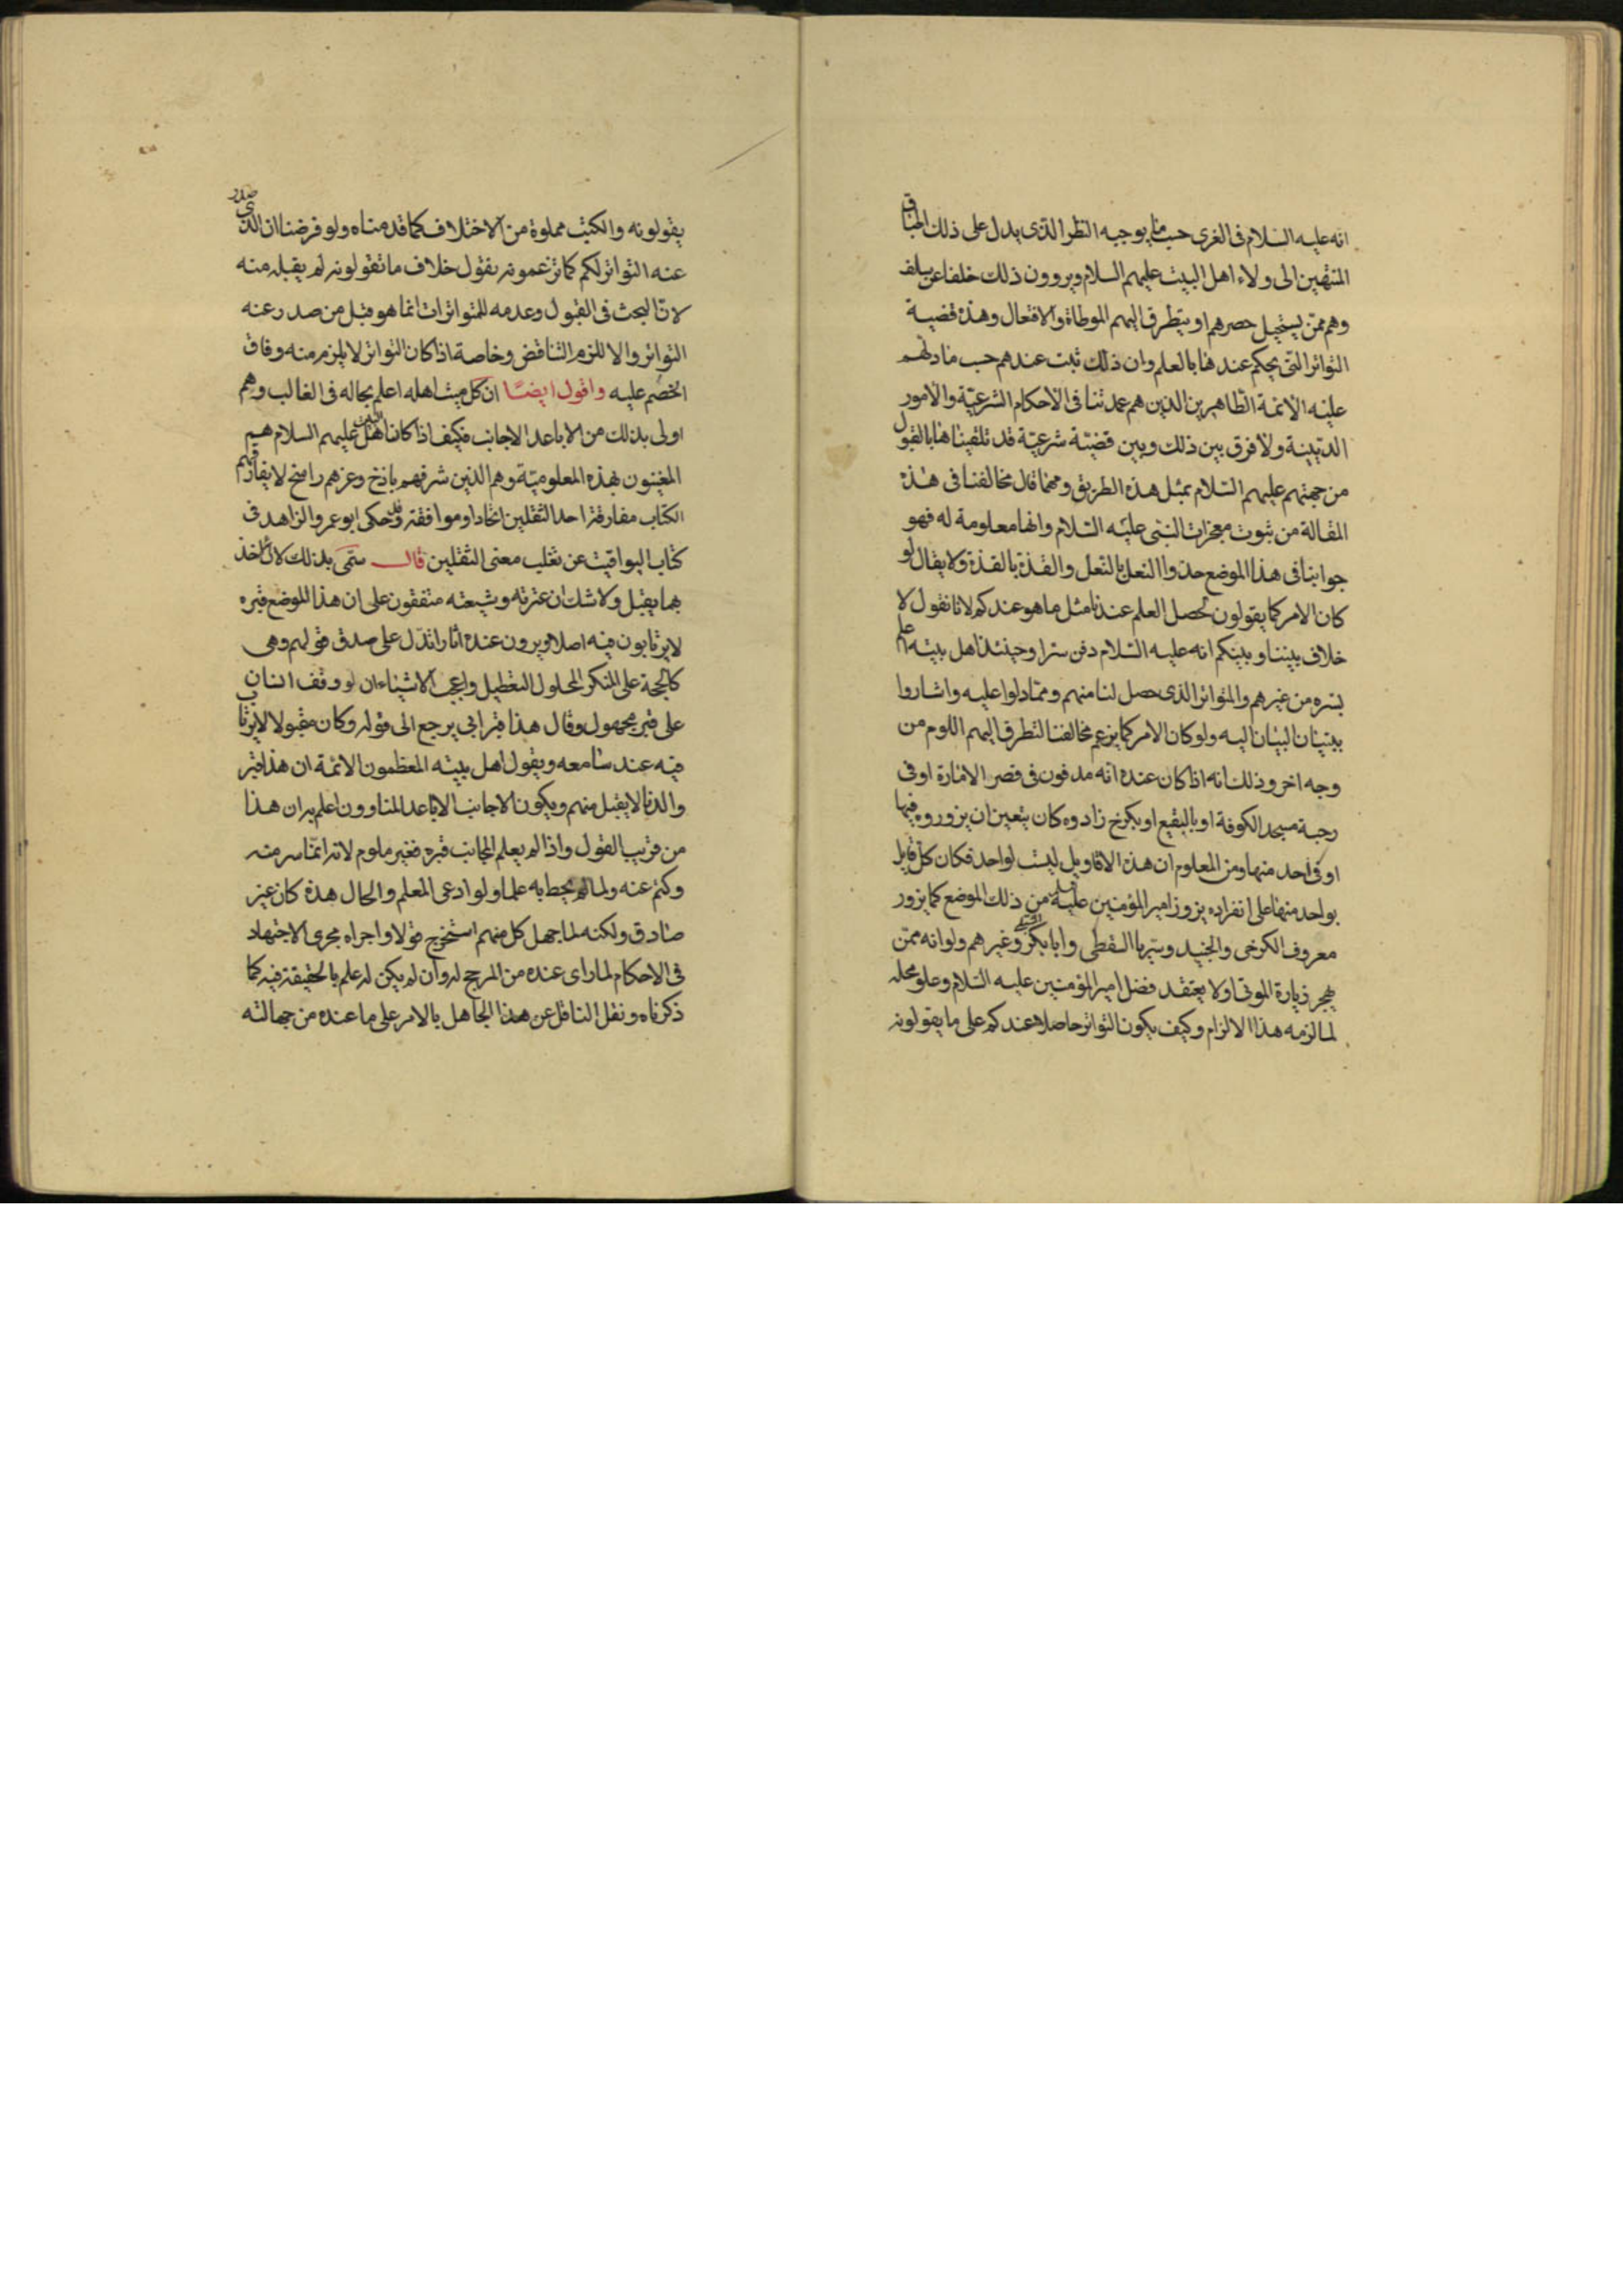 انه عليه السلام فى الغرى حسب ما يوجبه النظر الذى يدل على ذلك اطباق
المنتمين الى ولاء اهل البيت عليهم السلام ويروون ذلك خلفا عن سلف
وهم ممن يستحيل حصرهم او يتطرق اليهم المواطاة والافتعال وهذه قضية
التواتر التى يحكم عندها بالعلم وان ذلك ثبت عندهم حسب ما دلهم
عليه الائمة الطاهرين الذين هم عمدتنا فى الاحكام الشرعية والامور
الدينية ولا فرق بين ذلك وبين قضية شرعية قد تلقيناها بالقبول
من جهتهم عليهم السلام بمثل هذه الطريق ومهما قال مخالفنا فى هذه
المقالة من ثبوت معجزات النبى عليه السلام وانها معلومة له فهو
جوابنا فى هذا الموضع حذوا النعل بالنعل والقذة بالقذة ولا يقال لو
كان الامر كما يقولون لحصل العلم عندنا مثل ما هو عندكم لانا نقول لا
خلاف بيننا وبينكم انه عليه السلام دفن سترا وحينئذ اهل بيته اعلم
بسره من غيرهم والتواتر الذى حصل لنا منهم ومما دلوا عليه واشاروا
ببنيان البيان اليه ولو كان الامر كما يزعم مخالفنا لتطرق اليهم اللوم من
وجه اخر وذلك انه اذا كان عنده انه مدفون فى قصر الامارة او فى
رحبة مسجد الكوفة او بالبقيع او بكرخ زادوه كان يتعين ان يزوروه فيها
او فى احد منها ومن المعلوم ان هذه الاقاويل ليست لواحد فكان كل قايل
بواحد منها على انفراده يزور امير المؤمنين عليه السلم من ذلك الموضع كما يزور
معروف الكرخى والجنيد وسريا السقطى وابا بكر الشبلى وغيرهم ولو انه ممن
يهجر زيارة الموتى اولا يعتقد فضل امير المؤمنين عليه السلام وعلو محله
لما لزمه هذا الالزام وكيف يكون التواتر حاصلا عندكم على ما يقولونه
يقولونه والكتب مملوة من الاختلاف كما قدمناه ولو فرضنا ان الذى صدر
عنه التواتر لكم كما تزعمونه يقول خلاف ما تقولونه لم يقبل منه
لان البحث فى القبول وعدمه للمتواترات انما هو قبل من صدر عنه
التواتر والا للزم التناقض وخاصة اذا كان التواتر لا يلزم منه وفاق
الخصم عليه واقول ايضا ان كل ميت اهله اعلم بحاله فى الغالب وهم
اولى بذلك من الاباعد الاجانب فكيف اذا كان اهل البيت عليهم السلام هم
المغنيون بهذه المعلومية وهم الذين شرفهم باذخ وعزهم راسخ لا يفارقهم
الكتاب مفارقة احد الثقلين اتحادا وموافقة وقد حكى ابو عمرو الزاهد فى
كتاب اليواقيت عن ثعلب معنى الثقلين قال سمى بذلك لان الاخذ
بهما ثقيل ولا شك ان عترته وشيعته متفقون على ان هذا الموضع قبره
لا يرتابون فيه اصلا ويرون عنده اثارا تدل على صدق قولهم وهى
كالحجة على المنكر المحلول التعطيل واعجب الاشياء ان لو وقف انسان
على قبر مجهول وقال هذا قبر ابى يرجع الى قوله وكان مقبولا لا يرتاب
فيه عند سامعه ويقول اهل بيته المعظمون الائمة ان هذا قبر
والدنا لا يقبل منهم ويكون الاجانب الاباعد المناوون اعلم به ان هذا
من غريب القول واذا لم يعلم المجانب قبره فغير ملوم لانه انما ستر منه
وكتم عنه ولما لم يحط به علما ولو ادعى العلم والحال هذه كان غير
صادق ولكنه لما جهل كل منهم استخرج قولا واجراه مجرى الاجتهاد
فى الاحكام لما راى عنده من المرجح له وان لم يكن له علم بالحقيقة فيه كما
ذكرناه ونقل الناقل عن هذا الجاهل بالامر على ما عنده من جهالته